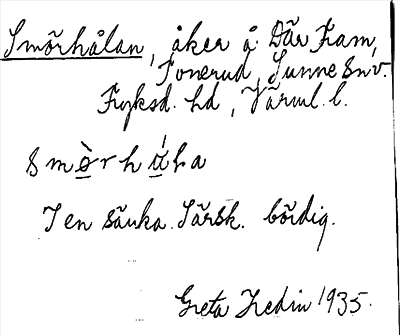 Smörhålan, åker å Där Fram,
Tonerud, Sunne Snv.
Fryksd. hd, Värml. l.
smö̀rhǻɬa
I en sänka. Särsk. bördig.
Greta Hedin 1935.